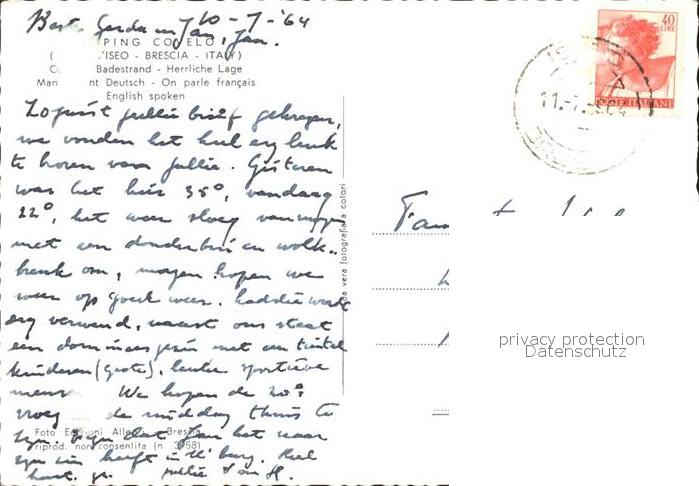 10-7-'64
Beste Gerda en Jan, Jan.
PING CO ELO
( 'ISEO - BRESCIA - ITALY)
C Badestrand - Herrliche Lage
Man nt Deutsch - On parle français
English spoken
Zojuist jullie brief gekregen,
we vonden het heel erg leuk
te horen van jullie. Gisteren
was het hier 35°, vandaag
22°, het weer sloeg vannacht
met een donderbui en wolk-
breuk om, mogen hopen we
weer op goed weer.
erg verwend, naast ons staat
een met een tiental
kinderen (grote), leuke sportieve
mensen We hopen de 20e
vroeg de middag thuis te
zijn. dat Jan het naar
zijn zin heeft in 
hart. gr. jullie
Foto Edizioni Brescia
riprod. non consentita (n. 3958)
vera fotografia a colori
40
LIRE
POSTE ITALIANE
ISEO
11.-7.
Fam
privacy protection
Datenschutz